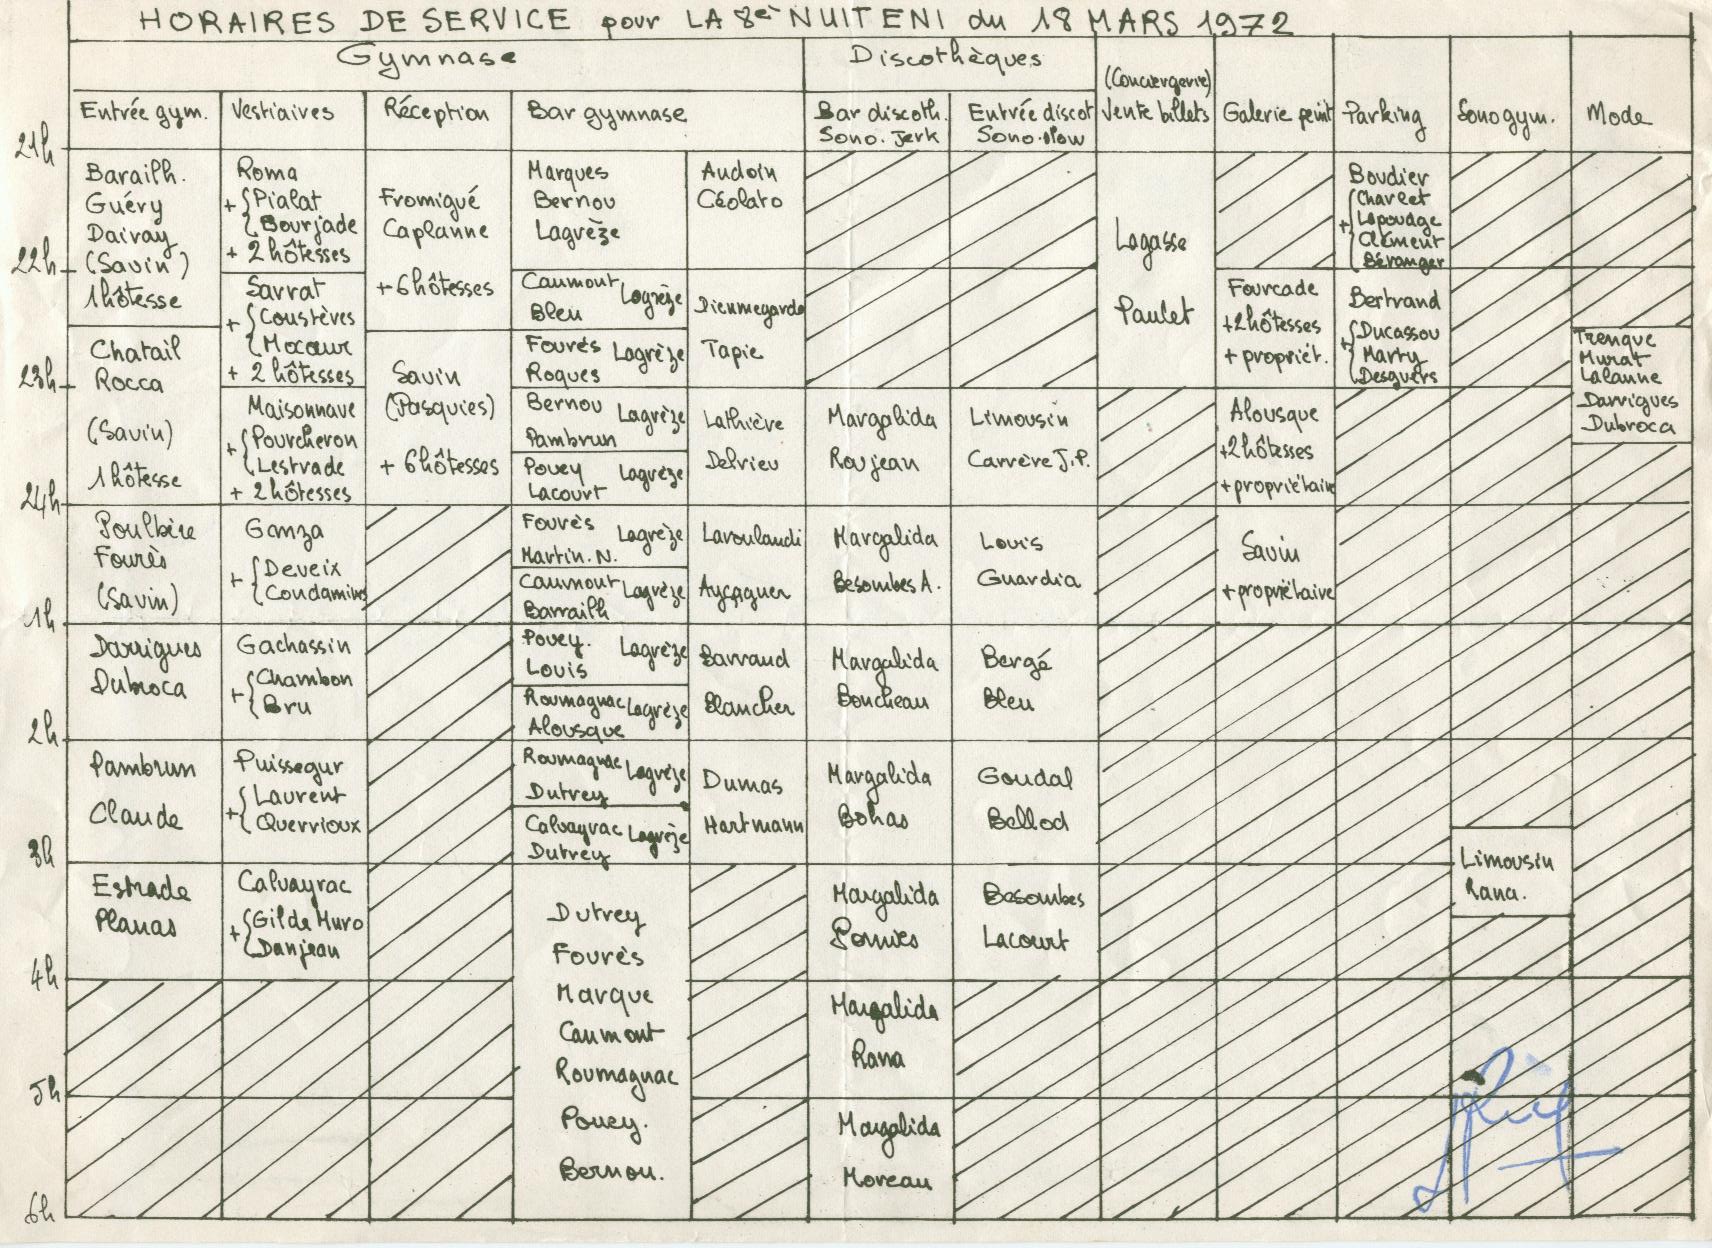 HORAIRES DE SERVICE pour LA 8è NUIT ENI du 18 MARS 1972
Gymnase
Discothèques
Entrée gym.
Vestiaires
Réception
Bar gymnase
Bar discoth.
Sono. Jerk
Entrée discot
Sono. slow
(Conciergerie)
Vente billets
Galerie peint
Parking
Sono gym.
Mode
21h
Barailh.
Guéry
Dairay
(Savin)
1 hôtesse
Roma
+ { Pialat
Bourjade
+ 2 hôtesses
Fromigué
Caplanne
+ 6 hôtesses
Marques
Bernou
Lagrèze
Audoin
Céolato
Lagasse
Paulet
Boudier
+ { Charlet
Lapoudge
Clément
Béranger
22h
Savrat
+ { Coustères
Mocœur
+ 2 hôtesses
Caumont Lagrèze
Bleu
Dieumegarde
Fourcade
+2 hôtesses
+ propriét.
Bertrand
+ { Ducassou
Marty
Desguers
Chatail
Rocca
(Savin)
1 hôtesse
Savin
(Pasquies)
+ 6 hôtesses
Fourès Lagrèze
Roques
Tapie
Trenque
Murat
Lalanne
Darrigues
Dubroca
23h
Maisonnave
+ { Pourcheron
Lestrade
+ 2 hôtesses
Bernou Lagrèze
Pambrun
Pouey Lagrèze
Lacourt
Lathière
Delrieu
Margalida
Roujean
Limousin
Carrère J.P.
Alousque
+2 hôtesses
+propriétaire
24h
Poulbère
Fourès
(Savin)
Ganza
+ { Deveix
Condamins
Fourès Lagrèze
Martin. N.
Caumont Lagrèze
Barrailh
Lavoulandi
Ayçaguer
Margalida
Besombes A.
Louis
Guardia
Savin
+ propriétaire
1h
Darrigues
Dubroca
Gachassin
+ { Chambon
Bru
Pouey. Lagrèze
Louis
Roumagnac Lagrèze
Alousque
Barraud
Blancher
Margalida
Boucheau
Bergé
Bleu
2h
Pambrun
Claude
Puissegur
+ { Laurent
Querrioux
Roumagnac Lagrèze
Dutrey
Calvayrac Lagrèze
Dutrey
Dumas
Hartmann
Margalida
Bohas
Goudal
Bellod
3h
Estrade
Planas
Calvayrac
+ { Gil de Muro
Danjean
Dutrey
Fourès
Marque
Caumont
Roumagnac
Pouey.
Bernou.
Margalida
Pomiès
Besombes
Lacourt
Limousin
Rana.
4h
Margalida
Rana
5h
Margalida
Moreau
6h